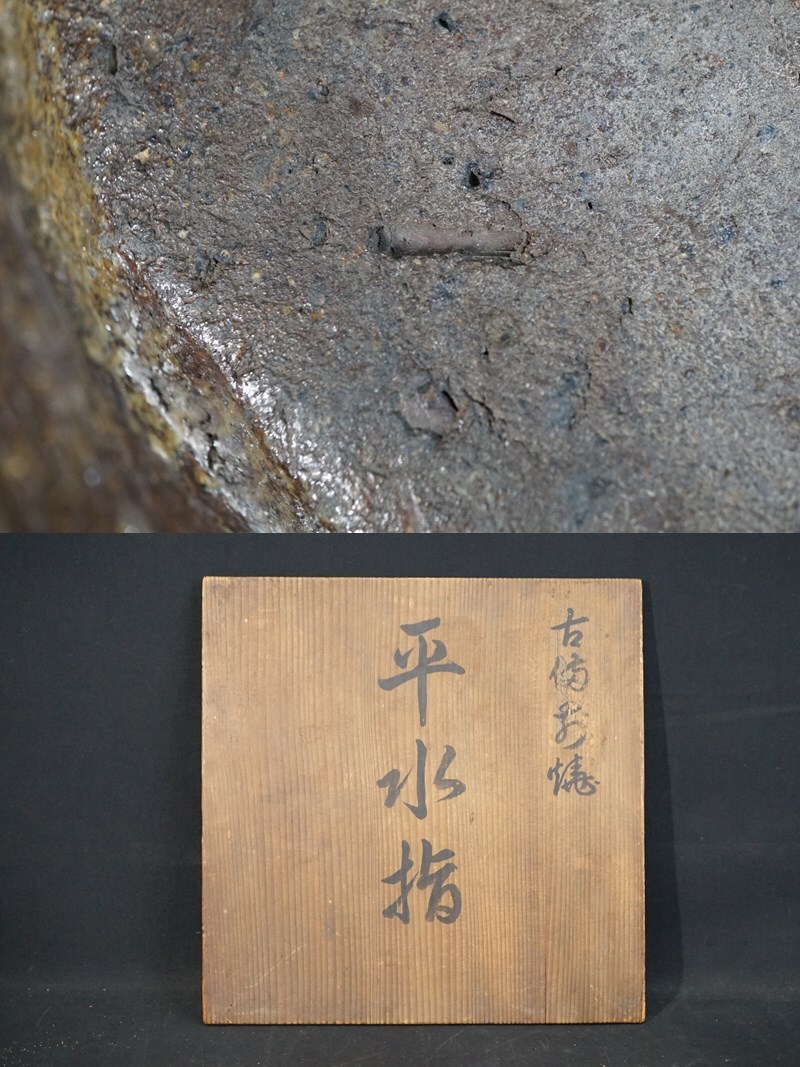 古備前焼
平水指